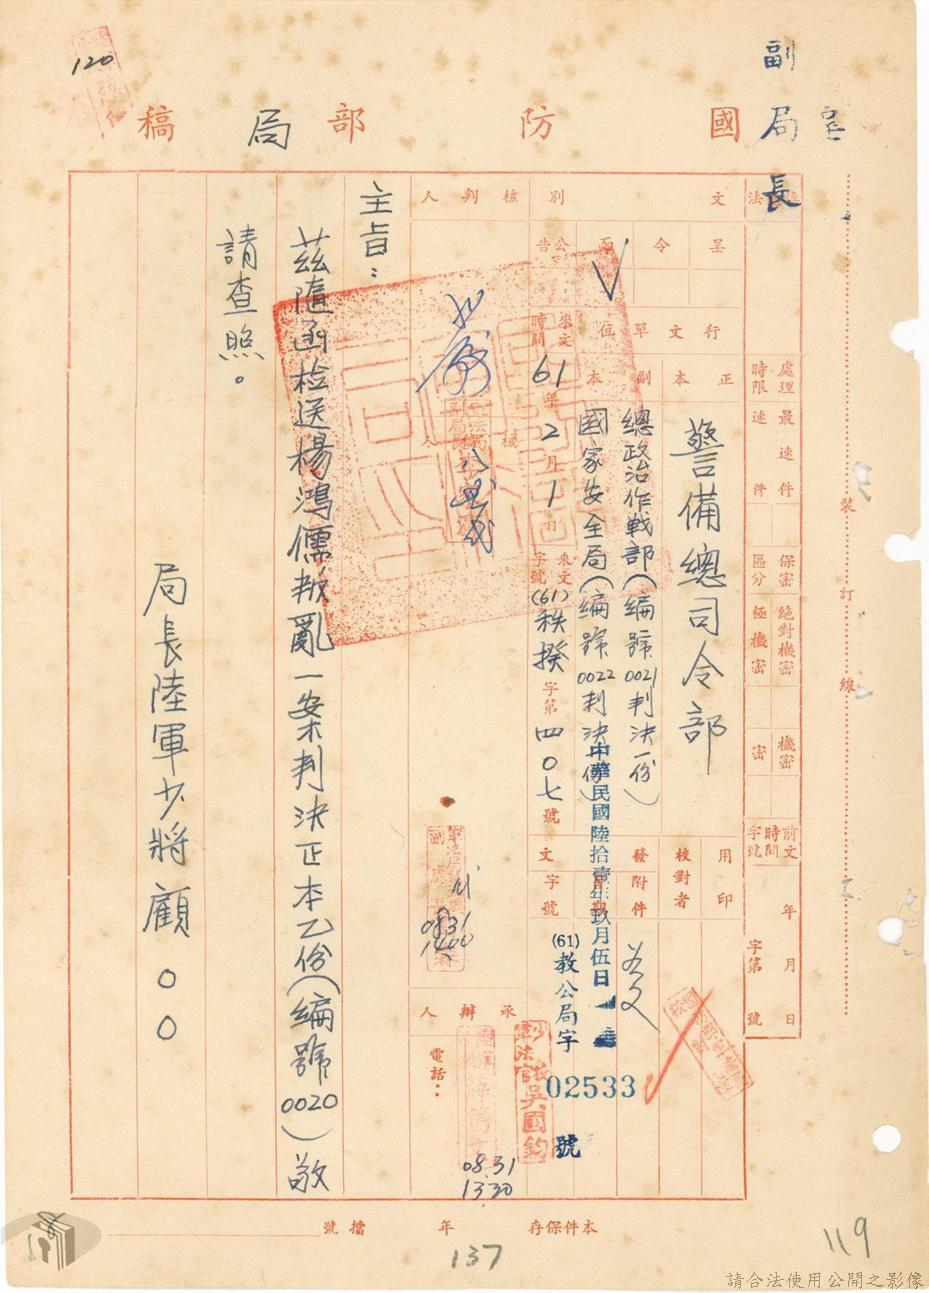 副局長
國防部局稿
120
文別
呈
令
函
公告
行文單位
正本
副本
警備總司令部
總政治作戰部（編號0021判決一份）
國家安全局（編號0022判決一份）
來文時間
61年2月1日
來文字號
(61)秩揆字第四〇七號
處理時限
最速件
速件
保密區分
絕對機密
極機密
機密
密
前文時間字號
年月日
字第號
用印
校對者
發附件
發文
日期
字號
中華民國陸拾壹年玖月伍日
(61)教公局字02533號
核判人
核人
承辦人
電話：
少校軍法官吳國鈞
08.31
13.30
0831
1400
主旨：
茲隨函检送楊鴻儒叛亂一案判决正本乙份（編號0020）敬
請查照。
局長陸軍少將顧〇〇
裝訂線
本件保存年
檔號
137
119
請合法使用公開之影像